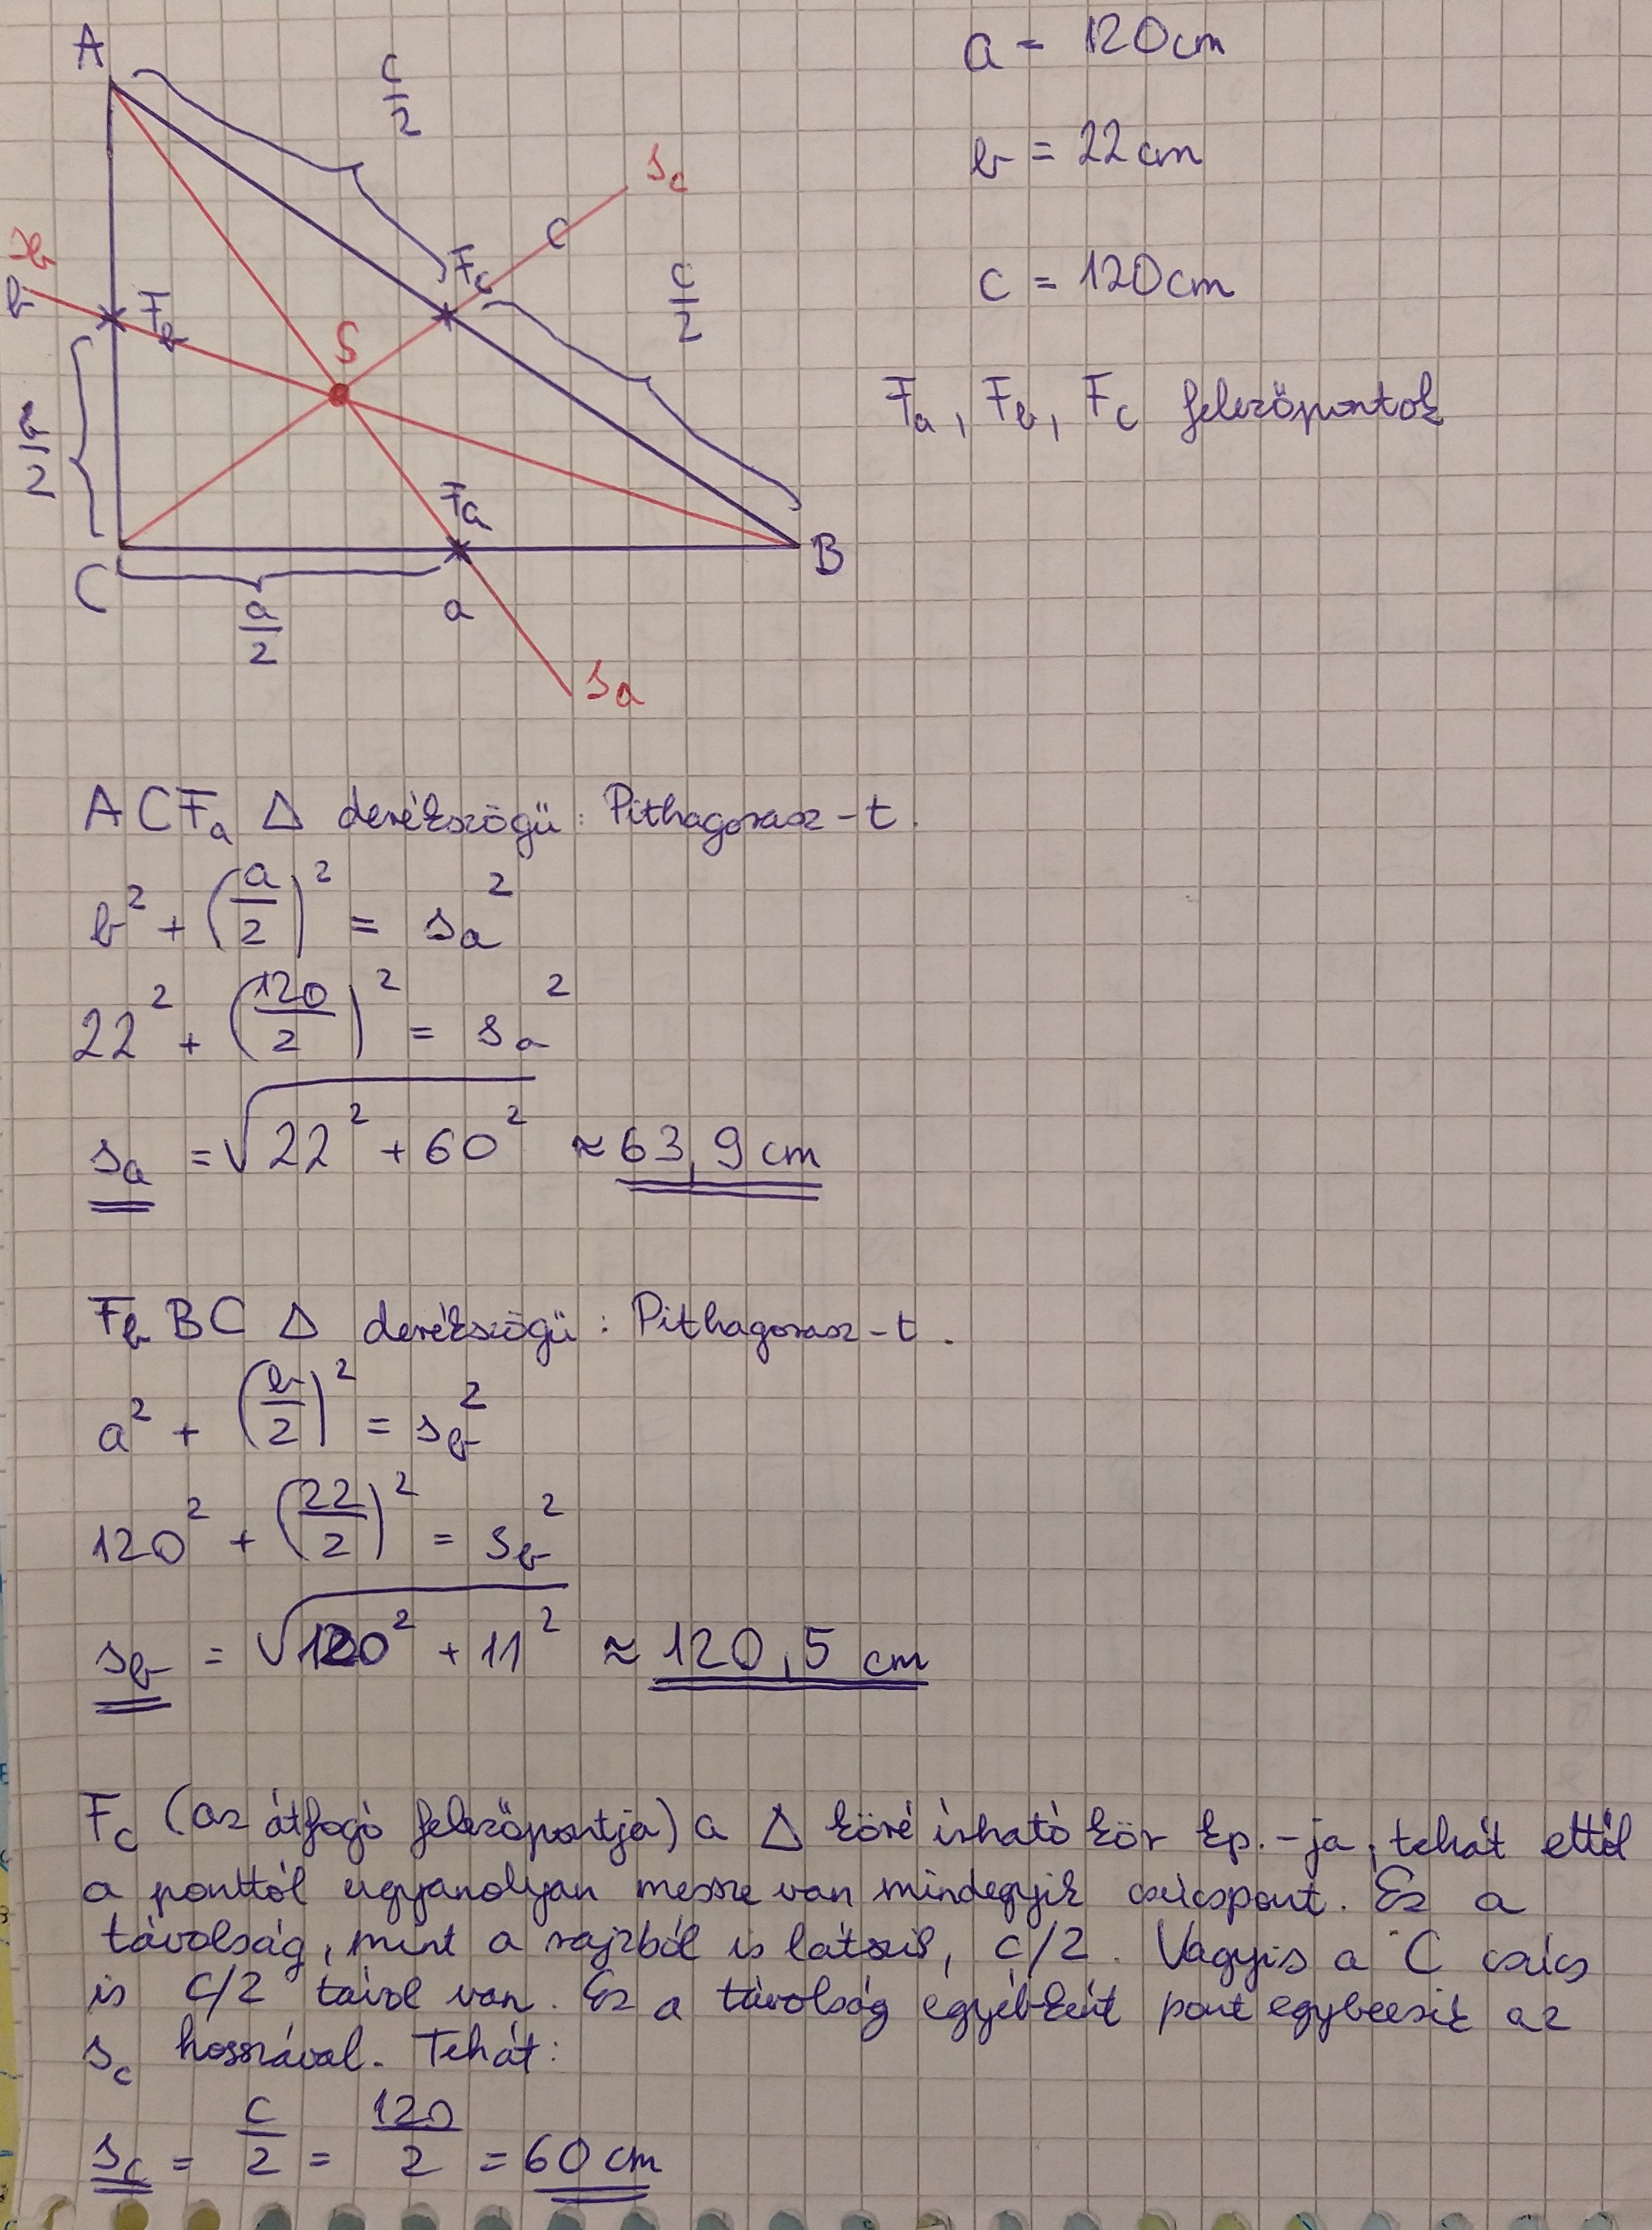 A
c/2
a = 120 cm
b = 22 cm
s_c
c
F_c
c/2
s_b
b
F_b
c = 120 cm
S
b/2
F_a, F_b, F_c felezőpontok
F_a
C
B
a/2
a
s_a
A C F_a △ derékszögű: Pithagorasz-t.
b² + (a/2)² = s_a²
22² + (120/2)² = s_a²
s_a = √(22² + 60²) ≈ 63,9 cm
F_b B C △ derékszögű: Pithagorasz-t.
a² + (b/2)² = s_b²
120² + (22/2)² = s_b²
s_b = √(120² + 11²) ≈ 120,5 cm
F_c (az átfogó felezőpontja) a △ köré írható kör kp.-ja, tehát ettől
a ponttól ugyanolyan messze van mindegyik csúcspont. Ez a
távolság, mint a rajzból is látszik, c/2. Vagyis a C csúcs
is c/2 távol van. Ez a távolság egyébként pont egybeesik az
s_c hosszával. Tehát:
s_c = c/2 = 120/2 = 60 cm